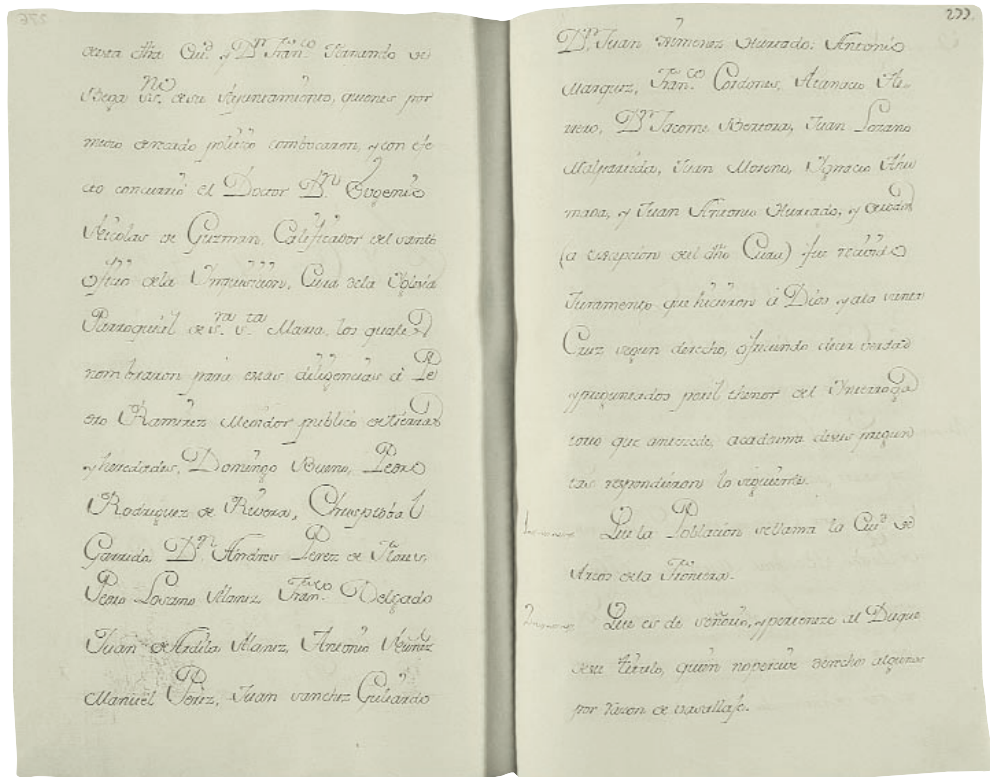 276
desta dha Ciud. y Dn. Franco. Fernando de
Vega sno. de su Ayuntamiento, quienes por
medio de recado politico combocaron, y con efe
cto concurrió el Doctor Dn. Eugenio
Nicolas de Guzman, Calificador del santo
oficio de la Ynquisicion, Cura de la Yglesia
Parroquiál de sra. sta. Maria, los quales
nombraron para estas diligencias á Pe
dro Ramirez Medidor publico de tierras
y heredades, Domingo Bueno, Pedro
Rodriguez de Rivera, Chrisptobal
Garrido, Dn. Andres Perez de
Pedro Lozano Alaniz Franco. Delgado
Juan de Ardila Alaniz, Antonio Nuñez
Manuel Perez, Juan sanchez Guijardo
277.
Dn. Juan Ximenez Hurtado, Antonio
Marquez, Franco. Cordones, Atanacio
Dn. Jacome Juan Lozano
Malpartida, Juan Moreno, Ygnacio
mada, y Juan Antonio Hurtado, y de todos
(a excepcion del dho Cura) fue recivido
Juramento que hicieron á Dios y a la santa
Cruz segun derecho, ofreciendo decir verdad
y preguntados por el thenor del Ynterroga
torio que antecede, a cada una de sus pregun
tas respondieron lo siguiente.
Que la Población se llama la Ciud. de
Arcos de la Frontera.
Que es de señorio, y pertenece al Duque
de su titulo, quien no percive derechos algunos
por razon de vasallaje.